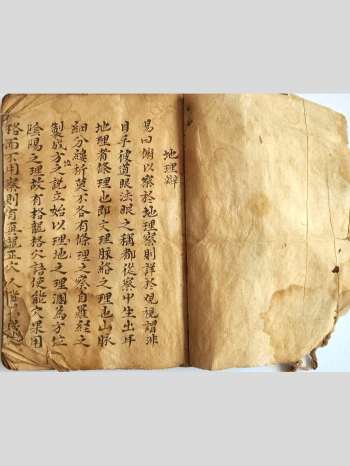 地理辯
易曰俯以察於地理察則詳於觀視謂非
目乎彼道眼法眼之稱都從察中生出耳
地理者條理也即文理脈絡之理也山脉
細分縷析莫不各有條理之察自羅經之
製成方位之說立始以理地之理溷為方位
陰陽之理故有格龍格穴語便能穴果用
格而不用察則有真龍正穴人皆